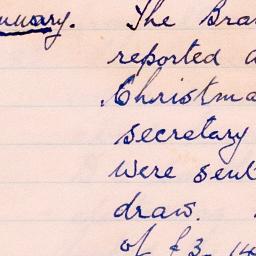 The Bra
reported a
Christma
secretary
were sent
draw.
of £3.